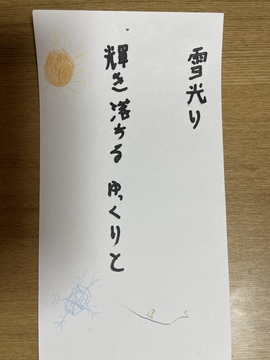 雪光り
輝き落ちる ゆっくりと